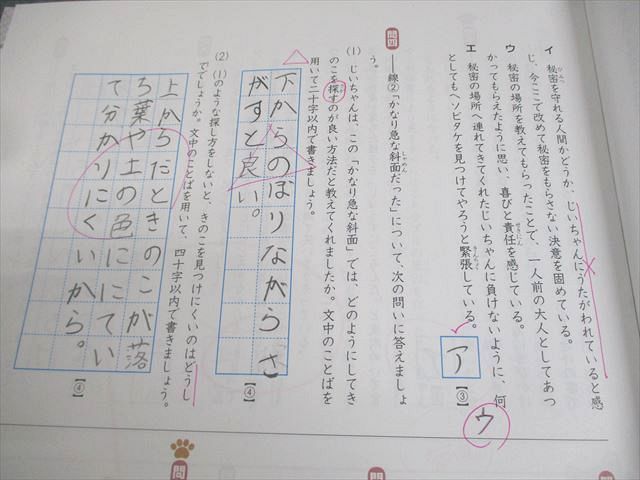 イ 秘密を守れる人間かどうか、じいちゃんにうたがわれていると感
じ、今ここで改めて秘密をもらさない決意を固めている。
ウ 秘密の場所を教えてもらったことで、一人前の大人としてあつ
かってもらえたように思い、喜びと責任を感じている。
エ 秘密の場所へ連れてきてくれたじいちゃんに負けないように、何
としてもヘソビタケを見つけてやろうと緊張している。
ア
【③】
ウ
問四
――線②「かなり急な斜面だった」について、次の問いに答えましょ
う。
(1) じいちゃんは、この「かなり急な斜面」では、どのようにしてき
のこを探すのが良い方法だと教えてくれましたか。文中のことばを
用いて二十字以内で書きましょう。
下からのぼりながらさ
がすと良い。
【④】
(2) (1)のような探し方をしないと、きのこを見つけにくいのはどうし
てでしょうか。文中のことばを用いて、四十字以内で書きましょう。
上からだときのこが落
ち葉や土の色ににてい
て分かりにくいから。
【④】
問
問